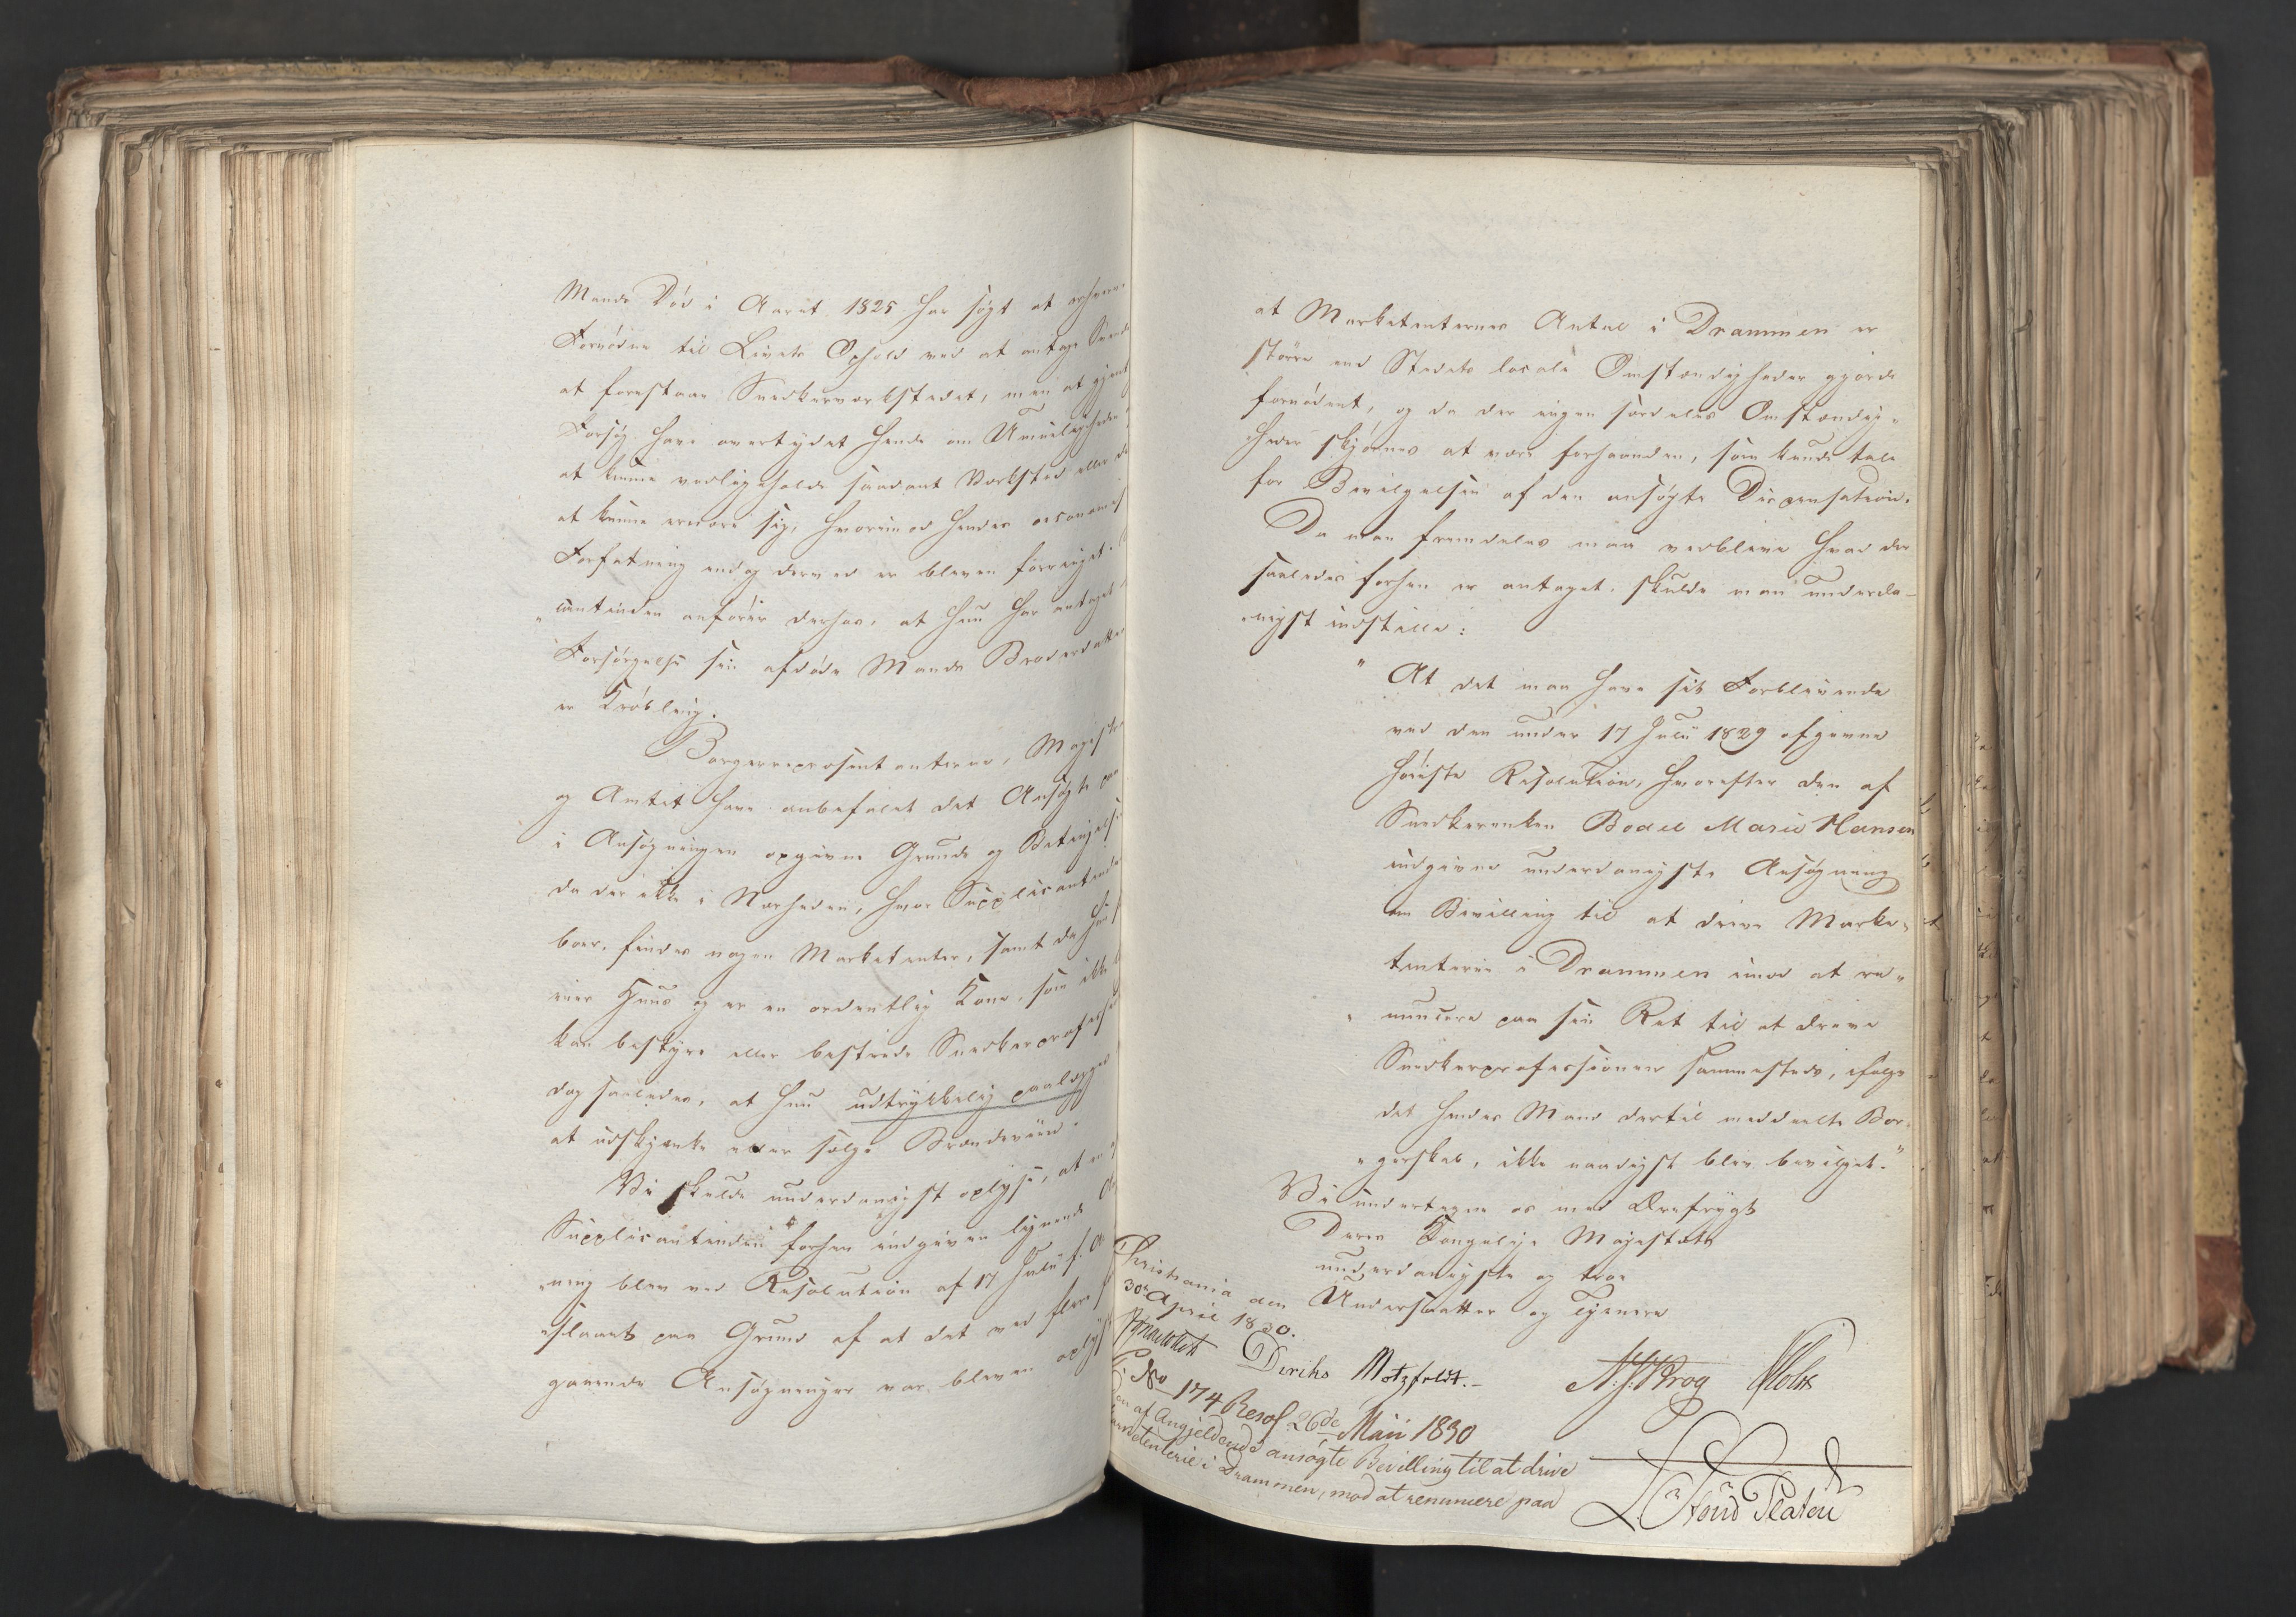 Mands Død i Aaret 1825 har søgt at erhverve
Fornødne til Livets Ophold ved at antage Svende
at forestaae Snedkerværkstedet, men at gjent
Forsøg have overtydet hende om Umueligheden
at kunne vedligeholde saadant Værksted eller de
at kunne ernære sig, hvorimod hendes oeconomis
Forfatning endog derved er bleven forringet.
„cantinden anfører derhos, at hun har antaget
Forsørgelse sin afdøde Mands Broderdatter
er Krøbling.
Borgerrepræsentanterne, Magistr
og Amtet have anbefalet det Ansøgte paa
i Ansøgningen opgivne Grunde og Betingelse
da der ikke i Nærheden, hvor Supplicantinden
boer, findes nogen Marketenter, samt da hun
eier Huus og er en ordentlig Kone, som ikke
kan bestyre eller bestride Snedkerprofess
dog saaledes, at hun udtrykkelig paalægges
at udskjænke eller sælge Brændeviin.
Vi skulde underdanigst oplyse, at en
Supplicantinden forhen indgiven lignende An
„ning blev ved Resolution af 17 Julii f. A.
afslaaet paa Grund af at det ved flere f
gaaende Ansøgninger var bleven oplyst
at Marketenternes Antal i Drammen er
større end Stedets locale Omstændigheder gjorde
fornødent, og da der ingen særdeles Omstændig„
„heder skjønnes at være forhaanden, som kunde tale
for Bevilgelsen af den ansøgte Dispensation.
Da man fremdeles maa vedblive hvad der
saaledes forhen er antaget, skulde man underda„
„nigst indstille:
" At det maa have sit Forblivende
ved den under 17 Julii 1829 afgivne
høieste Resolution, hvorefter den af
Snedkerenken Bodil Marie Hansen
indgivne underdanigste Ansøgning
om Bevilling til at drive Marke„
tenterie i Drammen imod at re„
„nuncere paa sin Ret til at drive
Snedkerprofessionen sammesteds, ifølge
det hendes Mand dertil meddeelte Bor„
„gerskab, ikke naadigst blev bevilget."
Vi undertegne os med Ærefrygt
Deres Kongelige Majestæts
underdanigste og troe
Undersaatter og Tjenere
Christiania den
30te April 1830.
Diriks Motzfeldt.
N. J. Krog Holst
L. Stoud Platou
No 174 Resol 26de Maii 1830
Den af Angjeldende ansøgte Bevilling til at drive
Marketenterie i Drammen, mod at renuncere paa